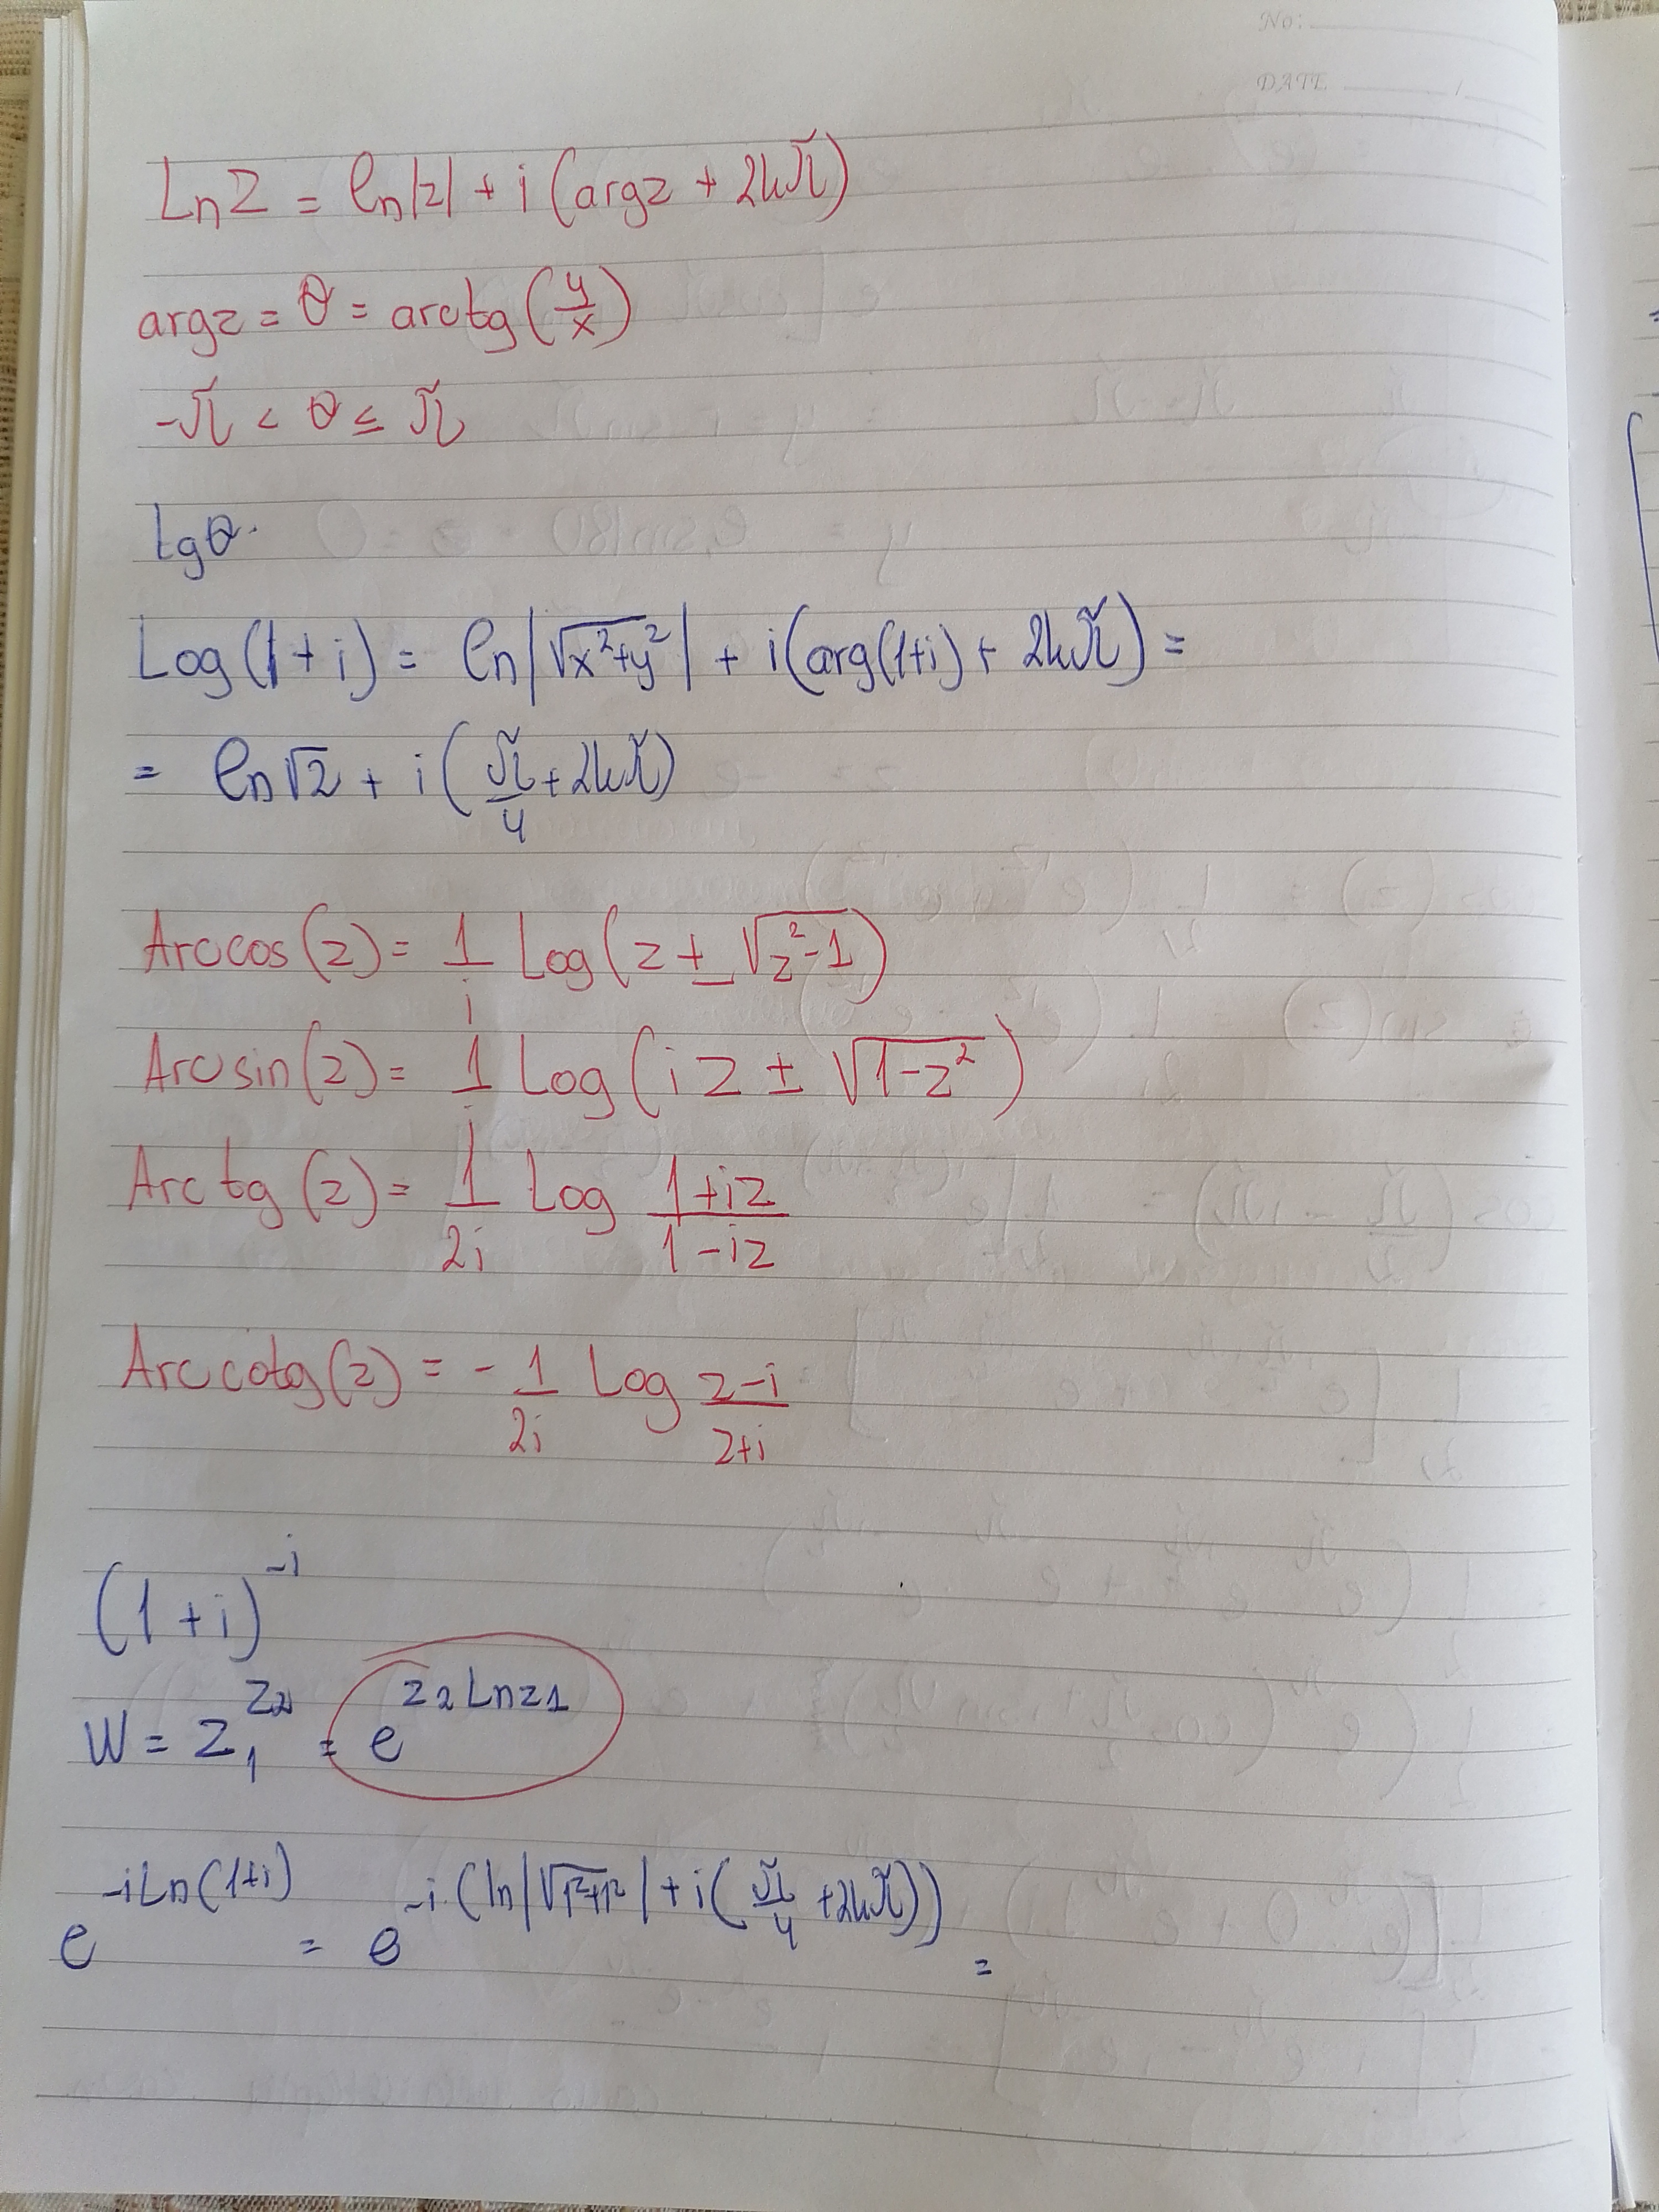 No:
DATE
Ln z = ln|z| + i(arg z + 2kπ)
arg z = θ = arctg(y/x)
-π < θ ≤ π
tgθ
Log(1+i) = ln|√(x²+y²)| + i(arg(1+i) + 2kπ) =
= ln√2 + i(π/4 + 2kπ)
Arccos(z) = 1/i Log(z ± √(z²-1))
Arcsin(z) = 1/i Log(iz ± √(1-z²))
Arctg(z) = 1/2i Log (1+iz)/(1-iz)
Arccotg(z) = - 1/2i Log (z-i)/(z+i)
(1+i)^-i
W = z₁^z₂ = e^(z₂ Ln z₁)
e^(-i Ln(1+i)) = e^(-i·(ln|√(1²+1²)| + i(π/4 + 2kπ))) =